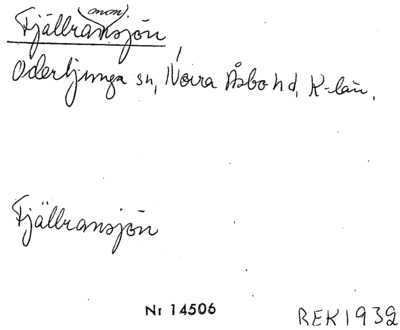 (mm)
Fjällransjön
Oderljunga sn, Norra Åsbo hd, K-län.
Fjällransjön
Nr 14506
REK 1932